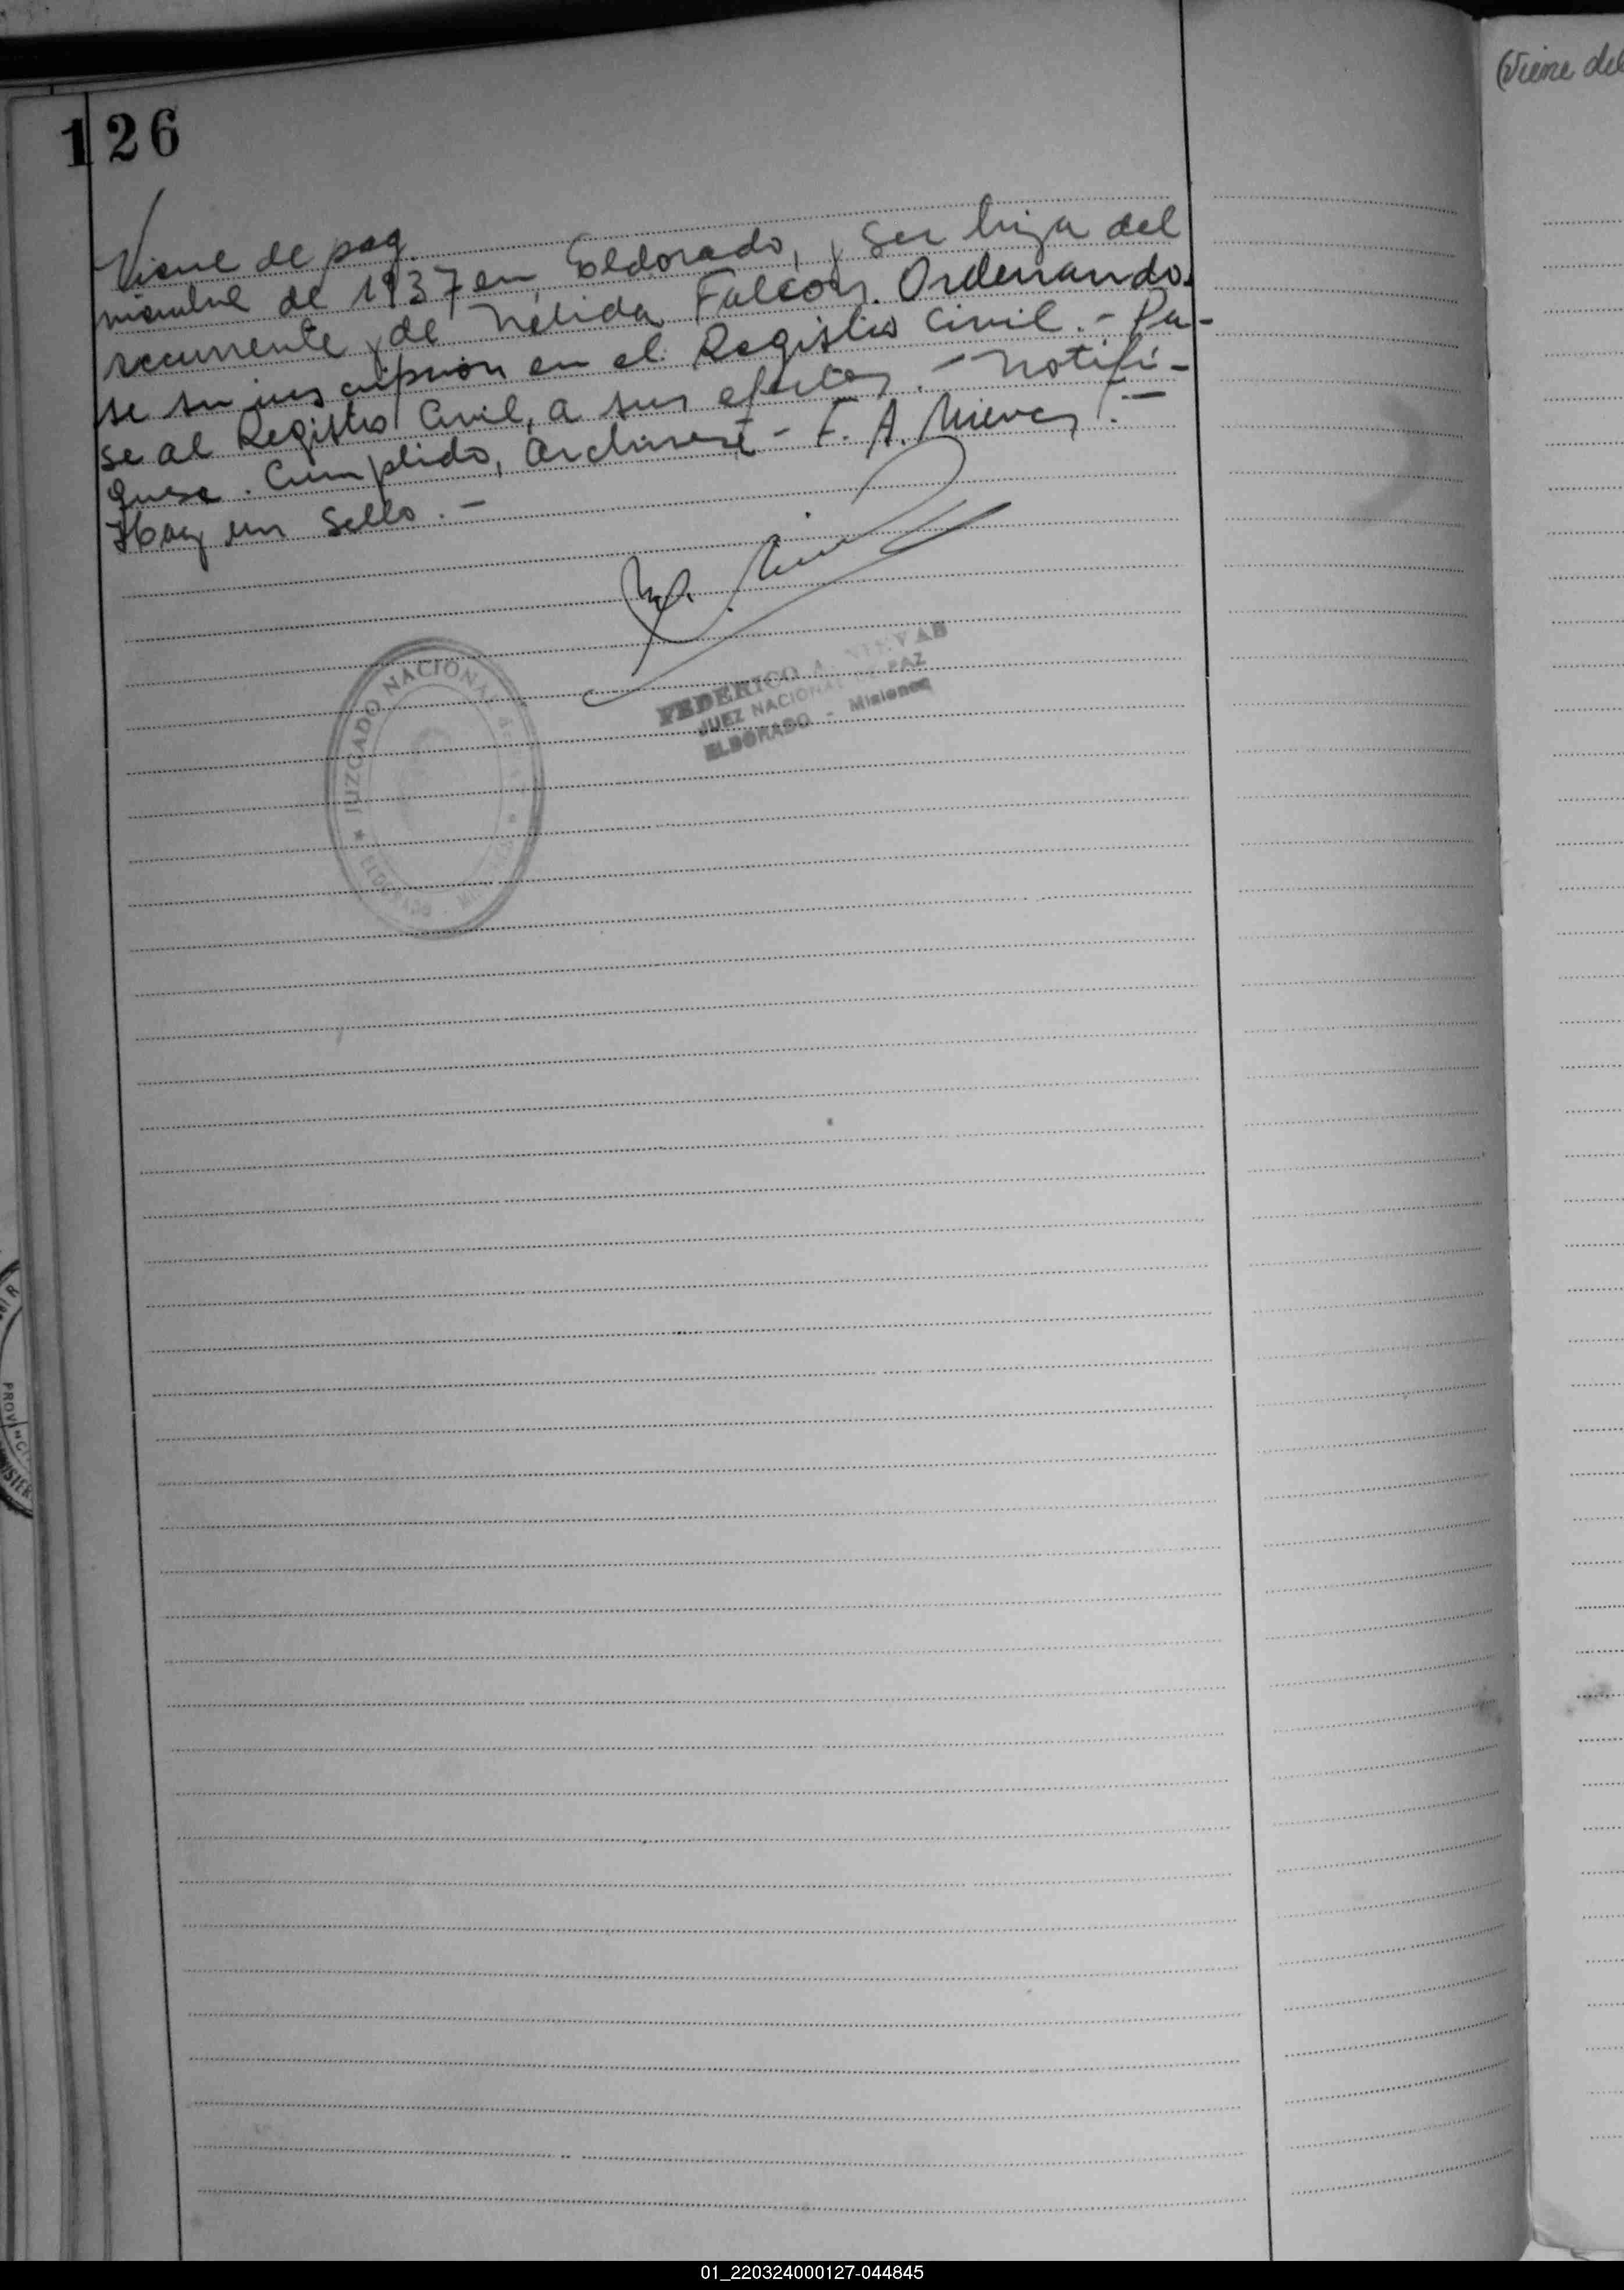 126
Viene de pag.
viembre de 1937 en Eldorado, y ser hija del
recurrente y de Nélida Falcón. Ordenando
se su inscripción en el Registro Civil.- Pa-
se al Registro Civil, a sus efectos.- Notifí-
quese. Cumplido, Archívese - F. A. Nievas.-
Hay un Sello.-
FEDERICO A. NIEVAS
JUEZ NACIONAL DE PAZ
ELDORADO - Misiones
JUZGADO NACIONAL DE PAZ
ELDORADO
(Viene del
PROVINCI
01_220324000127-044845